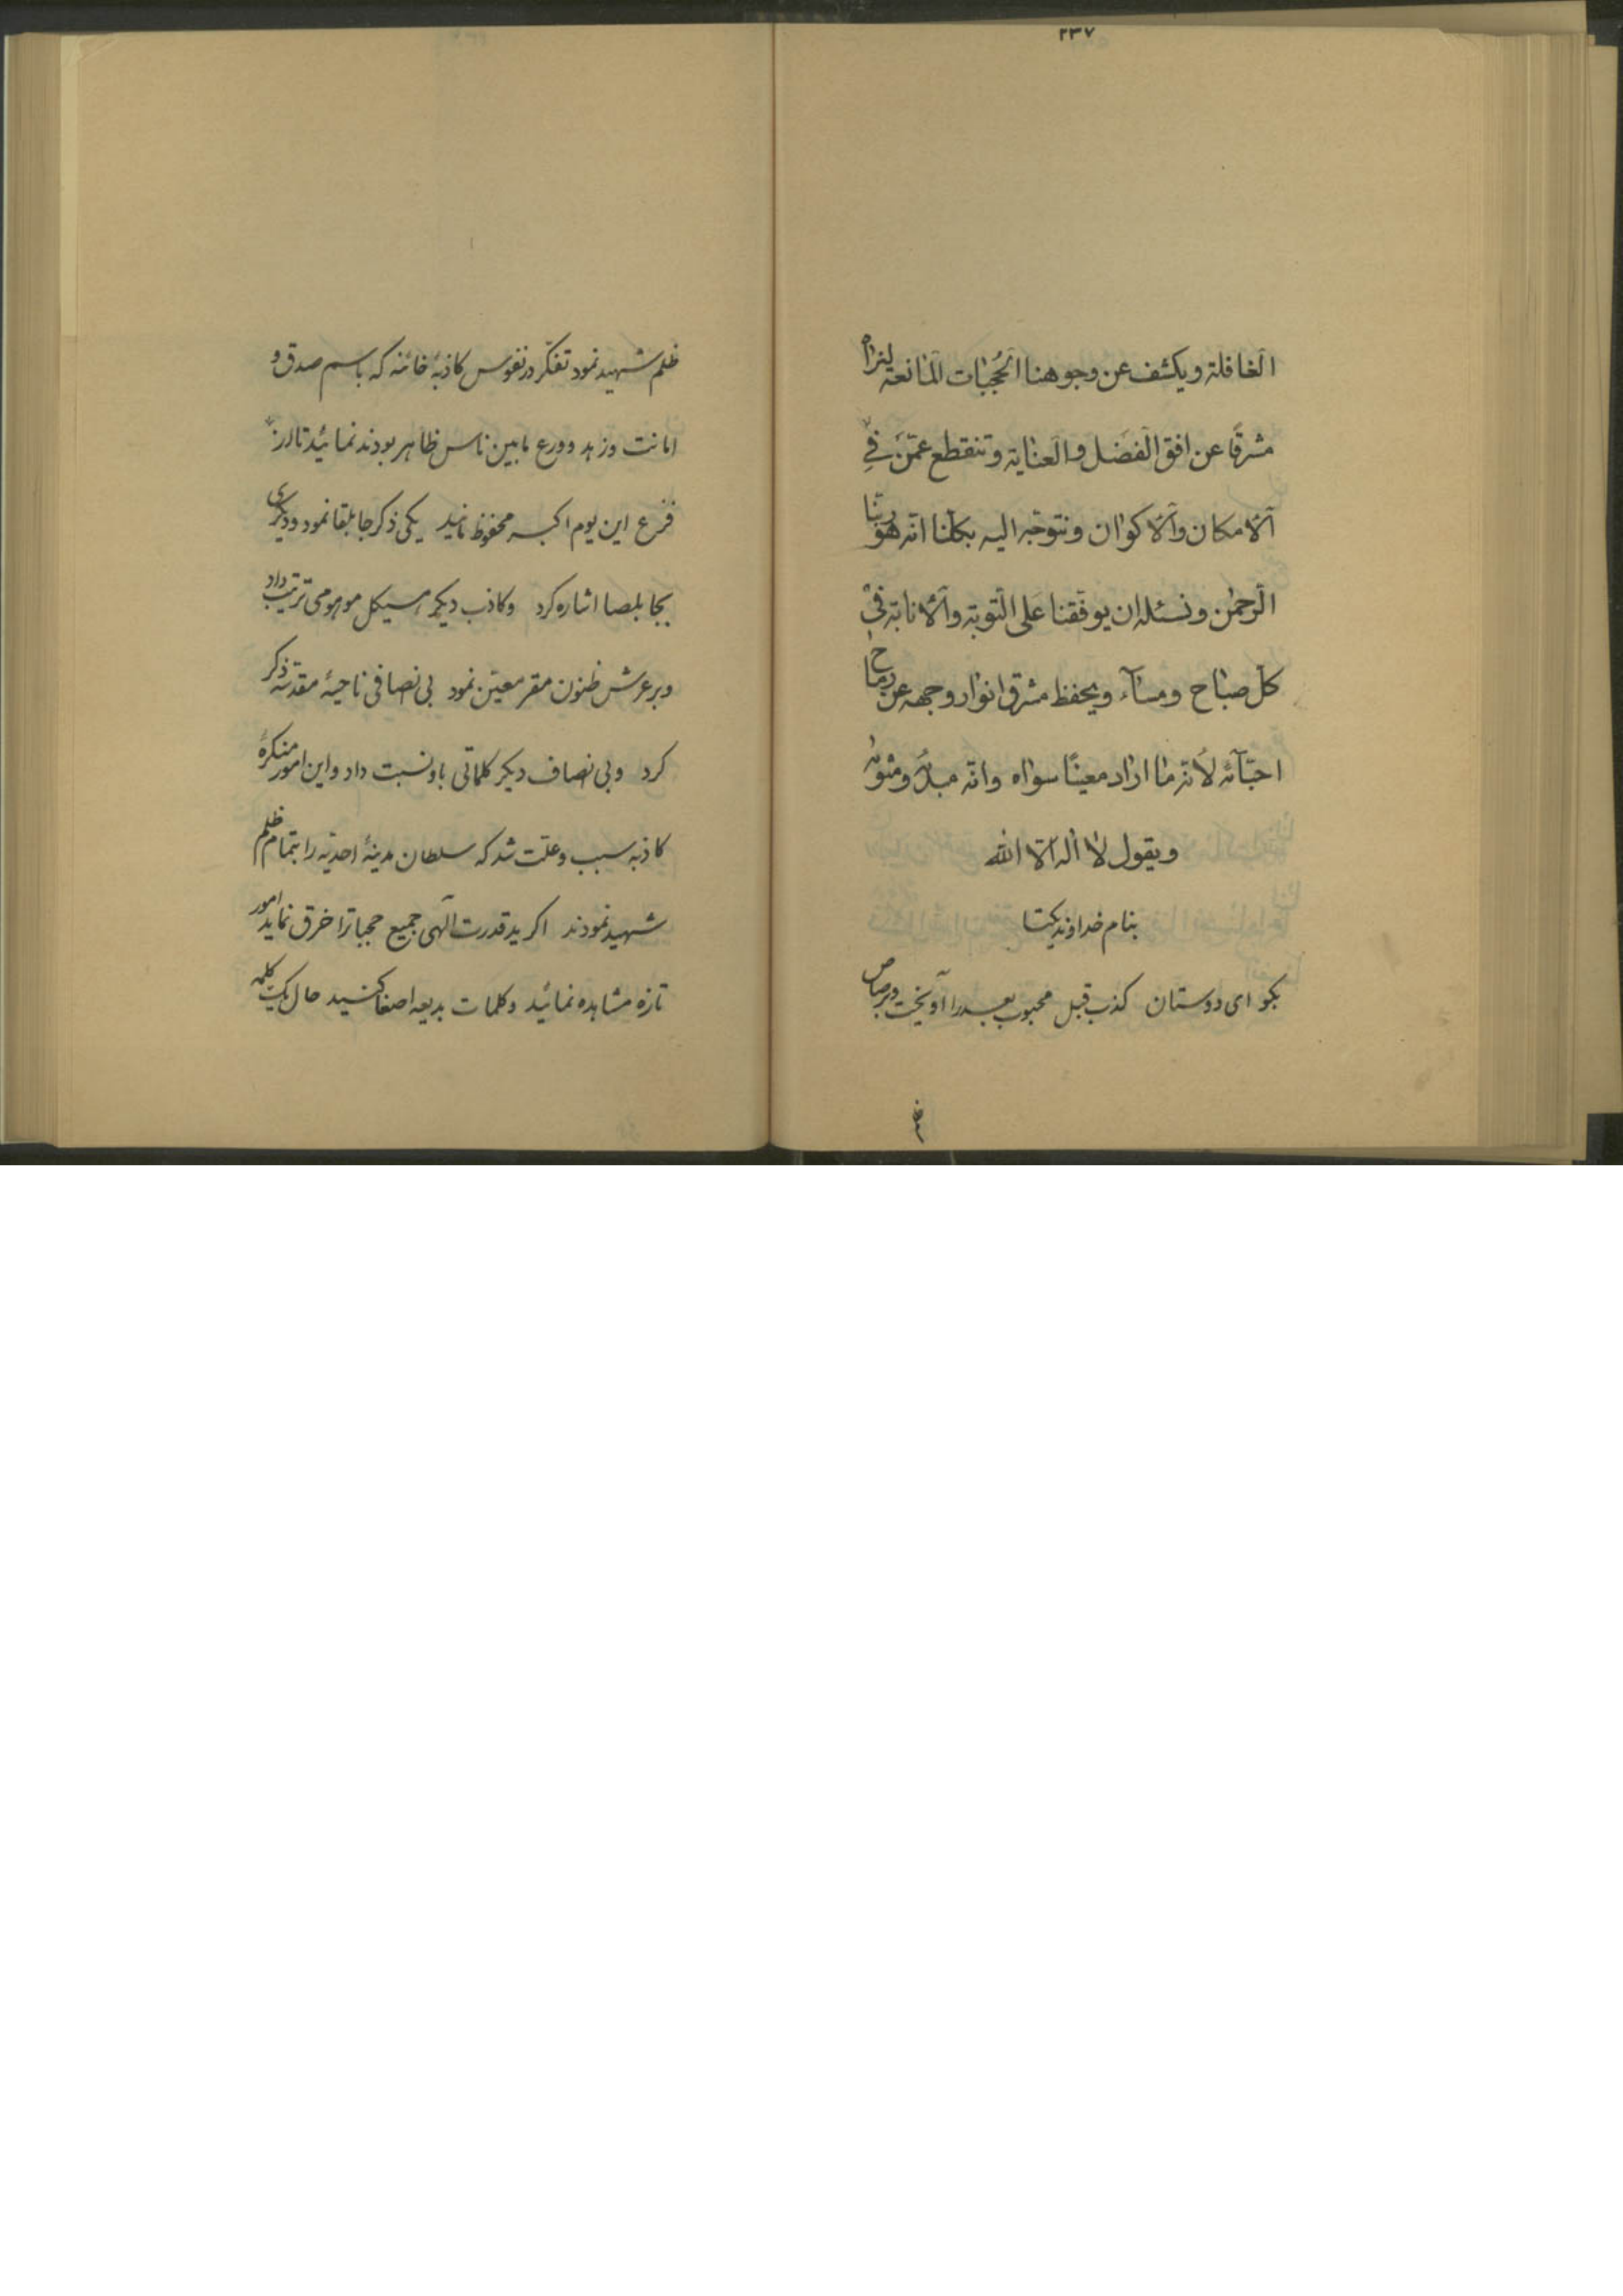 ۲۳۷
الغافلة ویکشف عن وجوهنا الحجبات المانعه لنراه
مشرقًا عن افق الفضل والعنایة وتنقطع عمّن فی
الأمکان والأکوان ونتوجّه الیه بکلّنا انّه هو ربّنا
الرّحمٰن ونسئله ان یوفّقنا علی التّوبة والأنابة فی
کلّ صباح ومسآء ویحفظ مشرق انوار وجهه عن رماح
احبّآئه لأنّه ما اراد معینًا سواه وانّه مبدئه ومثواه
ویقول لا اله الّا الله
بنام خداوند یکتا
بگو ای دوستان کذب قبل محبوب بعد را آویخت وبرصاص
ظلم
ظلم شهید نمود تفکّر در نفوس کاذبهٔ خائنه که باسم صدق و
امانت وزهد وورع مابین ناس ظاهر بودند نمائید تا از
فزع این یوم اکبر محفوظ مانید یکی ذکر جابلقا نمود ودیگری
بجابلصا اشاره کرد وکاذب دیگر هیکل موهومی ترتیب داد
وبر عرش ظنون مقر معیّن نمود بی انصافی ناحیهٔ مقدّسه ذکر
کرد وبی انصاف دیگر کلماتی باو نسبت داد واین امور منکرهٔ
کاذبه سبب وعلّت شد که سلطان مدینهٔ احدیّه را بتمام ظلم
شهید نمودند اگر ید قدرت الهی جمیع حجبات را خرق نماید امور
تازه مشاهده نمائید وکلمات بدیعه اصغا کنید حال یک کلمه